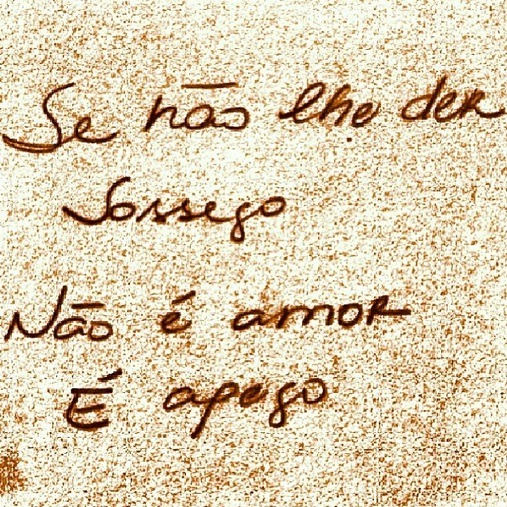 Se não lhe der
Sossego
Não é amor
É apego